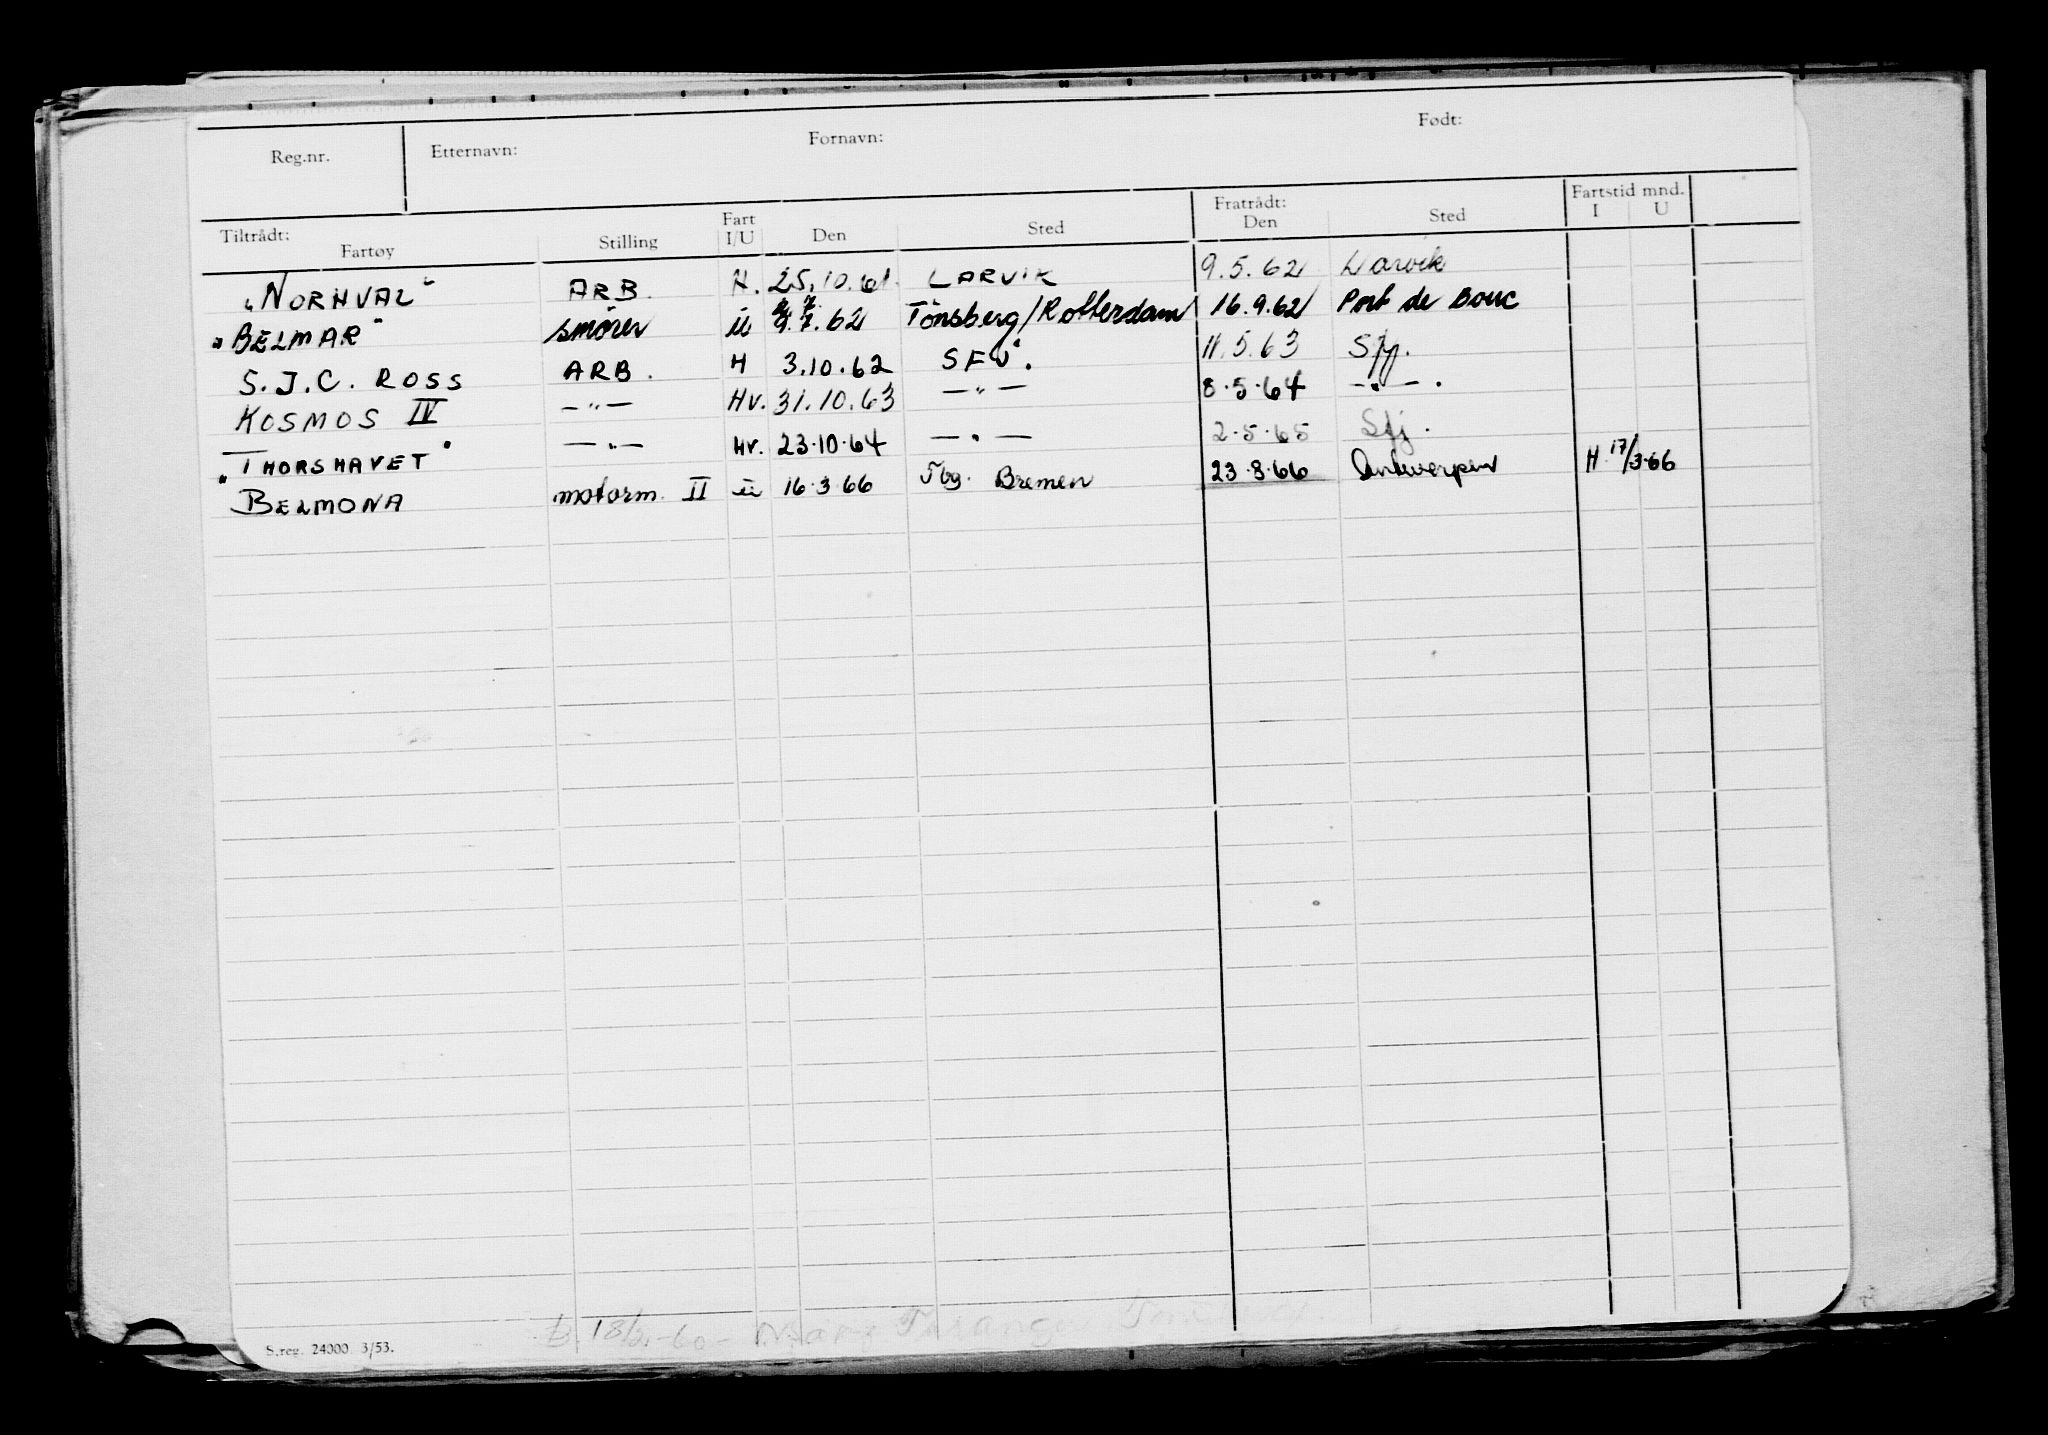 Reg.nr. Etternavn: Fornavn: Født:
Tiltrådt: Fartøy Stilling Fart I/U Den Sted Fratrådt: Den Sted Fartstid mnd. I U
"NORHVAL" ARB. H. 25.10.61. LARVIK 9.5.62 Larvik
"BELMAR" smører ü 9.7.62 Tönsberg/Rotterdam 16.9.62 Port de Bouc
S.J.C. ROSS ARB. H 3.10.62 SFJ. 11.5.63 Sfj.
KOSMOS IV —"— Hv. 31.10.63 —"— 8.5.64 —"—.
"THORSHAVET" —"— Hv. 23.10.64 —"— 2.5.65 Sfj.
BELMONA motorm. II ü 16.3.66 Tbg. Bremen 23.8.66 Antwerpen H 17/3.66
S.reg. 24000 3/53.